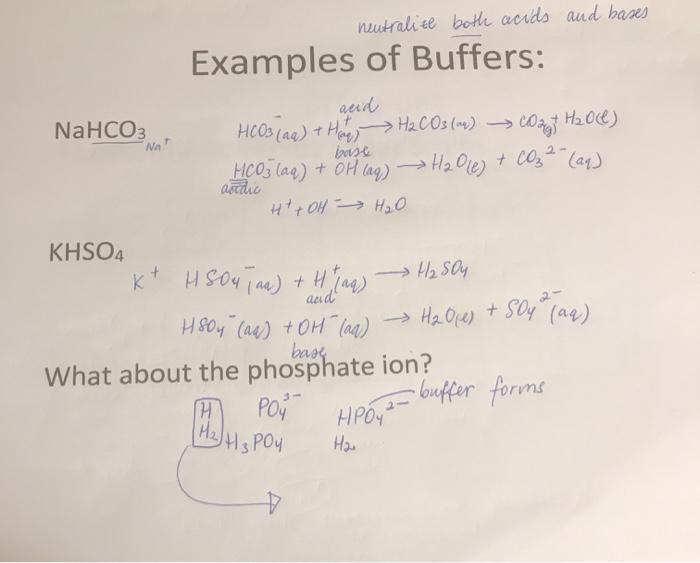 neutralize both acids and bases
Examples of Buffers:
acid
NaHCO3 HCO3⁻(aq) + H⁺(aq) → H2CO3(aq) → CO2(g) + H2O(l)
Na⁺
base
HCO3⁻(aq) + OH⁻(aq) → H2O(l) + CO3²⁻(aq)
acidic
H⁺ + OH⁻ → H2O
KHSO4
K⁺ HSO4⁻(aq) + H⁺(aq) → H2SO4
acid
HSO4⁻(aq) + OH⁻(aq) → H2O(l) + SO4²⁻(aq)
base
What about the phosphate ion?
H PO4³⁻ HPO4²⁻ buffer forms
H2 H3PO4 H2